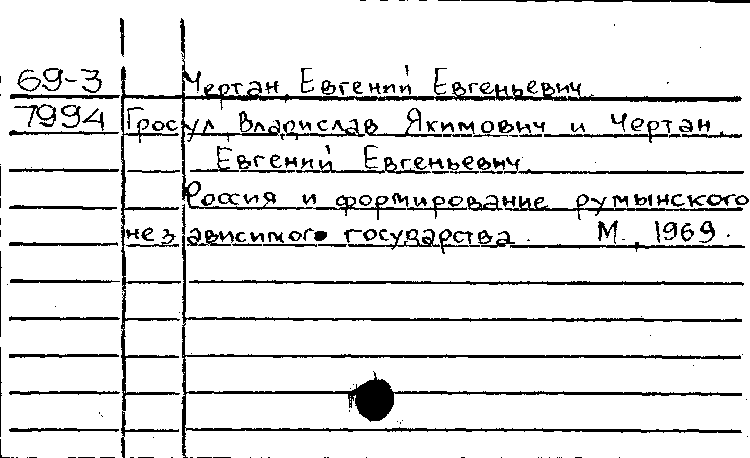 69-3 Чертан, Евгений Евгеньевич.
7994 Гросул, Владислав Якимович и Чертан,
Евгений Евгеньевич.
Россия и формирование румынского
независимого государства. М., 1969.